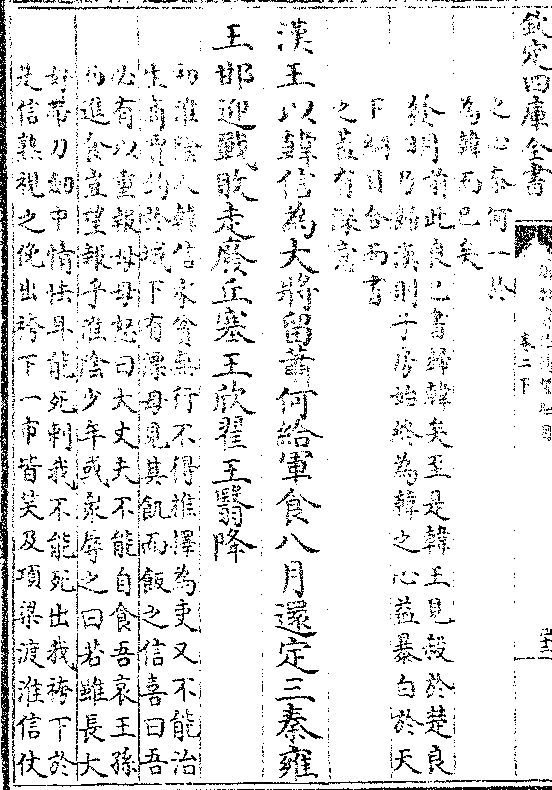 欽定四庫全書
卷二下
之心奈何一於
為韓而已矣
發明前此良已書歸韓矣至是韓王見殺於楚良
乃歸漢則子房始終為韓之心益暴白於天
下綱目分而書
之蓋有深意
漢王以韓信為大將留蕭何給軍食八月還定三秦雍
王邯迎戰敗走廢丘塞王欣翟王翳降
初淮陰人韓信家貧無行不得推擇為吏又不能治
生商賈釣於城下有漂母見其飢而飯之信喜曰吾
必有以重報母母怒曰大丈夫不能自食吾哀王孫
而進食豈望報乎淮陰少年或衆辱之曰若雖長大
好帶刀劍中情怯耳能死刺我不能死出我袴下於
是信熟視之俛出袴下一市皆笑及項梁渡淮信仗